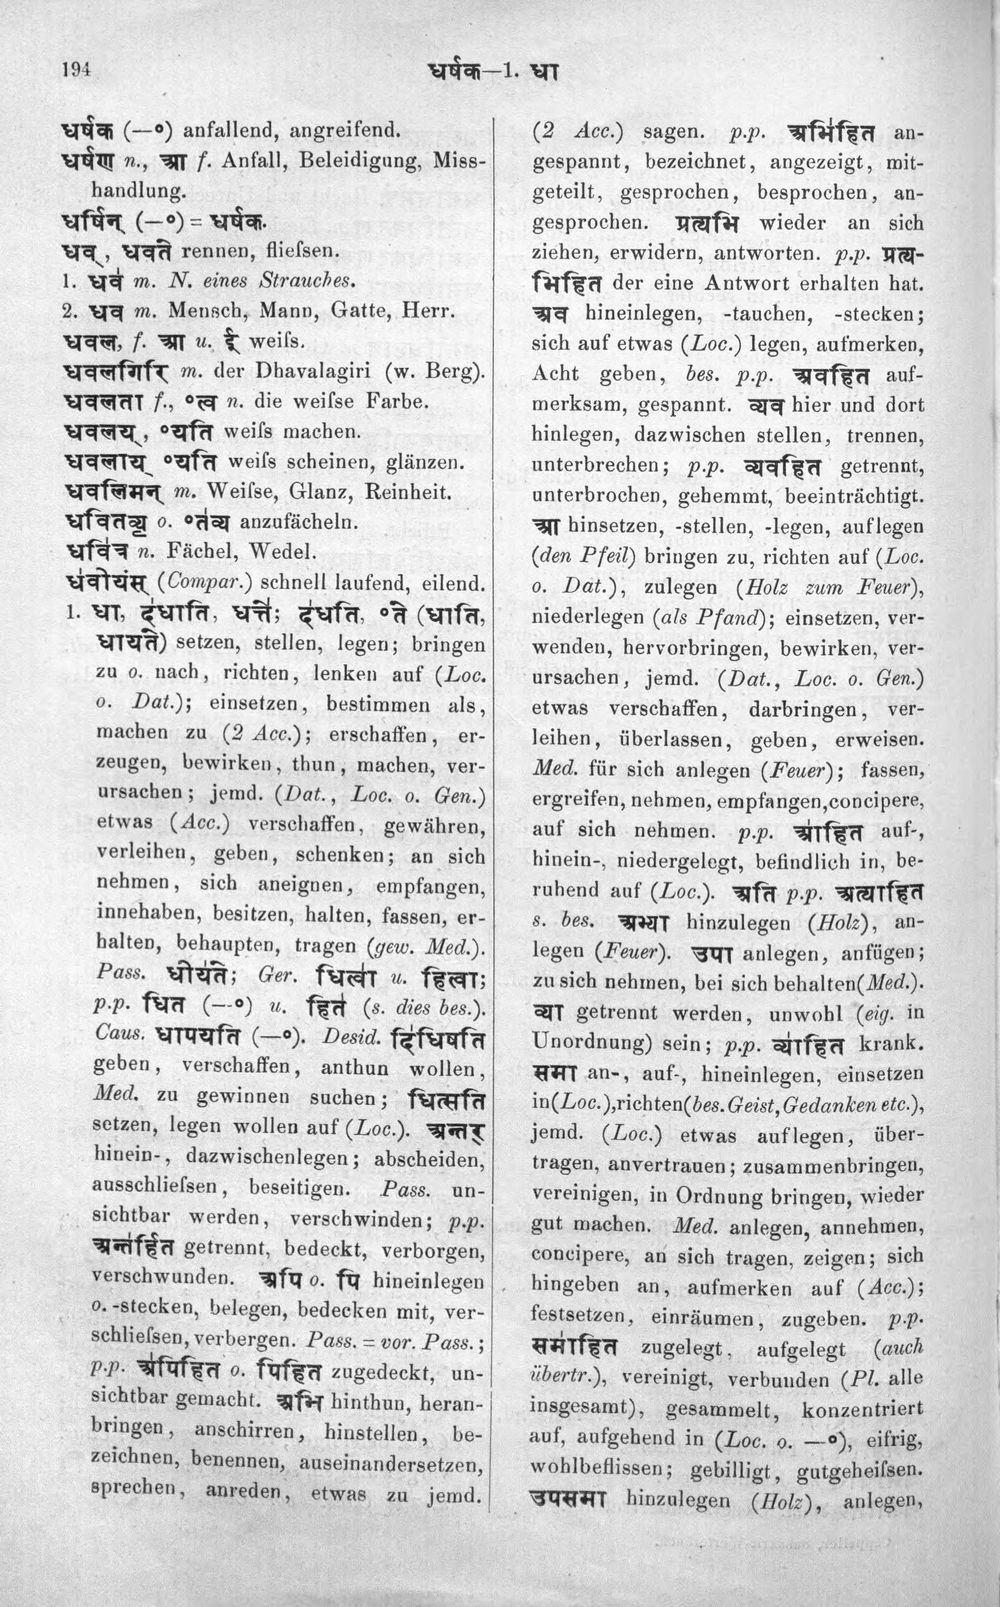 194
धर्षक—1. धा
धर्षक (—°) anfallend, angreifend.
धर्षण n., आ f. Anfall, Beleidigung, Miss-
handlung.
धर्षिन् (—°) = धर्षक.
धव्, धवते rennen, fliefsen.
1. धव॑ m. N. eines Strauches.
2. धव m. Mensch, Mann, Gatte, Herr.
धवल, f. आ u. ई weifs.
धवलगिरि m. der Dhavalagiri (w. Berg).
धवलता f., °त्व n. die weifse Farbe.
धवलय्, °यति weifs machen.
धवलाय् °यति weifs scheinen, glänzen.
धवलिमन् m. Weifse, Glanz, Reinheit.
धवितव्य॒ o. °त॑व्य anzufächeln.
धवि॑त्र n. Fächel, Wedel.
ध॑वीयंस् (Compar.) schnell laufend, eilend.
1. धा, द॑धाति, धत्ते॑; द॑धति, °ते (धाति,
धायते) setzen, stellen, legen; bringen
zu o. nach, richten, lenken auf (Loc.
o. Dat.); einsetzen, bestimmen als,
machen zu (2 Acc.); erschaffen, er-
zeugen, bewirken, thun, machen, ver-
ursachen; jemd. (Dat., Loc. o. Gen.)
etwas (Acc.) verschaffen, gewähren,
verleihen, geben, schenken; an sich
nehmen, sich aneignen, empfangen,
innehaben, besitzen, halten, fassen, er-
halten, behaupten, tragen (gew. Med.).
Pass. धीय॑ते; Ger. धित्वा॑ u. हित्वा;
p.p. धित (—°) u. हित॑ (s. dies bes.).
Caus. धापयति (—°). Desid. दि॑धिषति
geben, verschaffen, anthun wollen,
Med. zu gewinnen suchen; धित्सति
setzen, legen wollen auf (Loc.). अन्तर्
hinein-, dazwischenlegen; abscheiden,
ausschliefsen, beseitigen. Pass. un-
sichtbar werden, verschwinden; p.p.
अन्त॑र्हित getrennt, bedeckt, verborgen,
verschwunden. अपि o. पि hineinlegen
o. -stecken, belegen, bedecken mit, ver-
schliefsen, verbergen. Pass. = vor. Pass.;
p.p. अ॑पिहित o. पिहित zugedeckt, un-
sichtbar gemacht. अभि hinthun, heran-
bringen, anschirren, hinstellen, be-
zeichnen, benennen, auseinandersetzen,
sprechen, anreden, etwas zu jemd.
(2 Acc.) sagen. p.p. अभि॑हित an-
gespannt, bezeichnet, angezeigt, mit-
geteilt, gesprochen, besprochen, an-
gesprochen. प्रत्यभि wieder an sich
ziehen, erwidern, antworten. p.p. प्रत्य-
भिहित der eine Antwort erhalten hat.
अव hineinlegen, -tauchen, -stecken;
sich auf etwas (Loc.) legen, aufmerken,
Acht geben, bes. p.p. अवहित auf-
merksam, gespannt. व्यव hier und dort
hinlegen, dazwischen stellen, trennen,
unterbrechen; p.p. व्यवहित getrennt,
unterbrochen, gehemmt, beeinträchtigt.
आ hinsetzen, -stellen, -legen, auflegen
(den Pfeil) bringen zu, richten auf (Loc.
o. Dat.), zulegen (Holz zum Feuer),
niederlegen (als Pfand); einsetzen, ver-
wenden, hervorbringen, bewirken, ver-
ursachen, jemd. (Dat., Loc. o. Gen.)
etwas verschaffen, darbringen, ver-
leihen, überlassen, geben, erweisen.
Med. für sich anlegen (Feuer); fassen,
ergreifen, nehmen, empfangen, concipere,
auf sich nehmen. p.p. आ॑हित auf-,
hinein-, niedergelegt, befindlich in, be-
ruhend auf (Loc.). अति p.p. अत्याहित
s. bes. अभ्या hinzulegen (Holz), an-
legen (Feuer). उपा anlegen, anfügen;
zu sich nehmen, bei sich behalten (Med.).
व्या getrennt werden, unwohl (eig. in
Unordnung) sein; p.p. व्या॑हित krank.
समा an-, auf-, hineinlegen, einsetzen
in (Loc.), richten (bes. Geist, Gedanken etc.),
jemd. (Loc.) etwas auflegen, über-
tragen, anvertrauen; zusammenbringen,
vereinigen, in Ordnung bringen, wieder
gut machen. Med. anlegen, annehmen,
concipere, an sich tragen, zeigen; sich
hingeben an, aufmerken auf (Acc.);
festsetzen, einräumen, zugeben. p.p.
समा॑हित zugelegt, aufgelegt (auch
übertr.), vereinigt, verbunden (Pl. alle
insgesamt), gesammelt, konzentriert
auf, aufgehend in (Loc. o. —°), eifrig,
wohlbeflissen; gebilligt, gutgeheifsen.
उपसमा hinzulegen (Holz), anlegen,